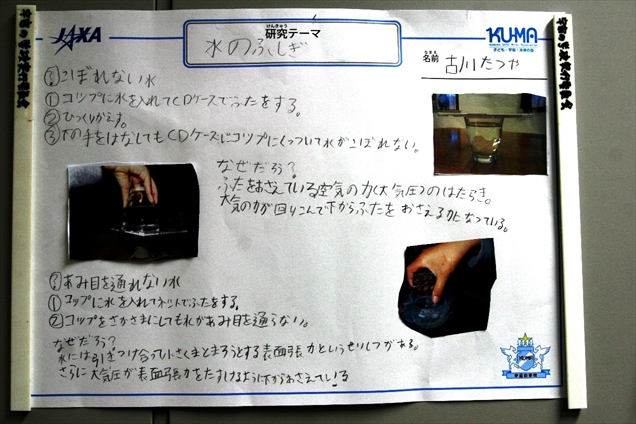 JAXA
けんきゅう
研究テーマ
水のふしぎ
KU-MA
子ども・宇宙・未来の会
なまえ
名前 古川たつや
③こぼれない水
①コップに水を入れてCDケースでふたをする。
②ひっくりかえす。
③下の手をはなしてもCDケースはコップにくっついて水がこぼれない。
なぜだろう?
ふたをおさえている空気の力(大気圧)のはたらき。
大気の力が回りこんで下からふたをおさえる力となっている。
あみ目を通れない水
①コップに水を入れてネットでふたをする。
②コップをさかさまにしても水があみ目を通らない。
なぜだろう?
水には引きつけ合って小さくまとまろうとする表面張力というせいしつがある。
さらに大気圧が表面張力をたすけるように下からおさえている
KU-MA
宇宙の学校